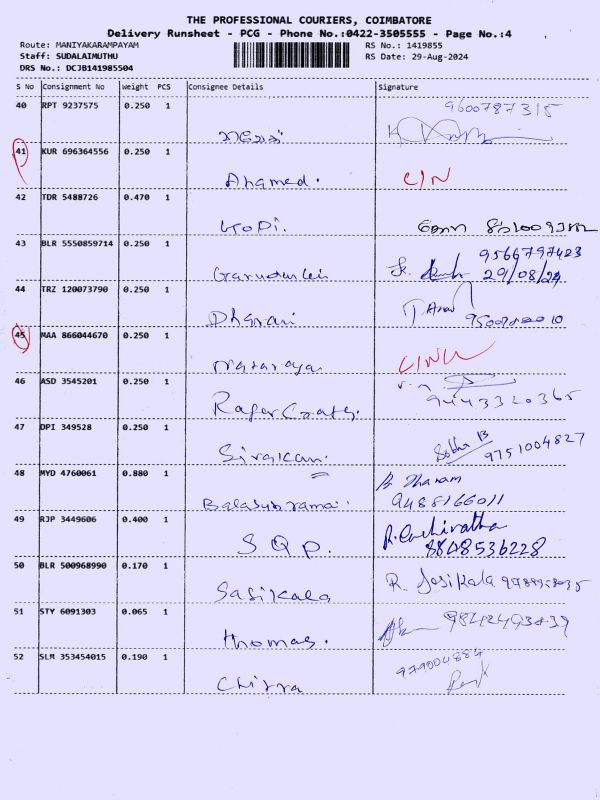 THE PROFESSIONAL COURIERS, COIMBATORE
Delivery Runsheet - PCG - Phone No.:0422-3505555 - Page No.:4
Route: MANIYAKARAMPAYAM RS No.: 1419855
Staff: SUDALAIMUTHU RS Date: 29-Aug-2024
DRS No.: DCJB141985504
S No Consignment No Weight PCS Consignee Details Signature
40 RPT 9237575 0.250 1 9600787315
41 KUR 696364556 0.250 1
Ahamed.
42 TDR 5488726 0.470 1
Gopi.
43 BLR 5550859714 0.250 1 9566797423
29/08/24
44 TRZ 120073790 0.250 1
Dharani
45 MAA 866044670 0.250 1
46 ASD 3545201 0.250 1
9443320365
47 DPI 349528 0.250 1
Sivakani 9751004827
48 MYD 4760061 0.880 1
Balasubrama 9488166011
49 RJP 3449606 0.400 1
SQP. 8848536228
50 BLR 500968990 0.170 1
Sasikala R. Sasikala
51 STY 6091303 0.065 1
Thomas. 9842493839
52 SLM 353454015 0.190 1 979004884
Chitra